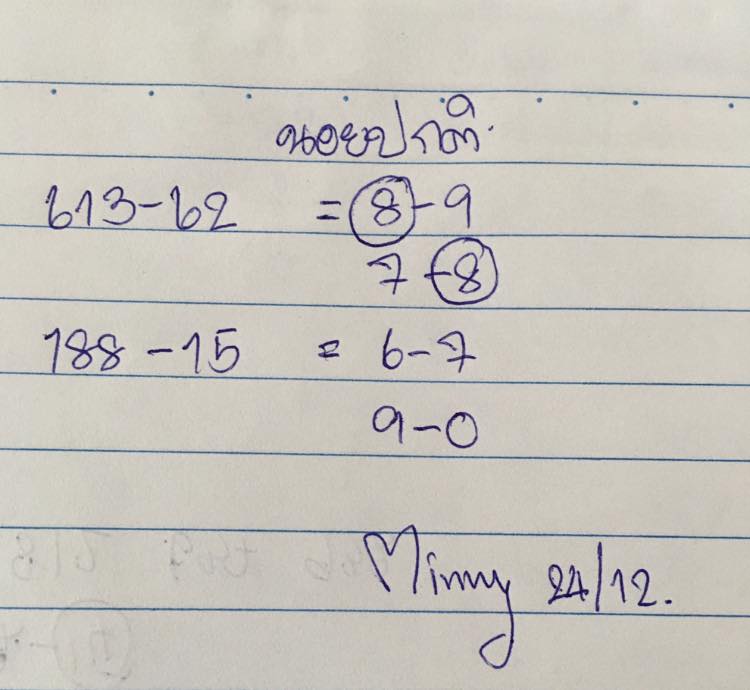 นอยปกติ.
613-62 = 8-9
7-8
188-15 = 6-7
9-0
Minny 24/12.